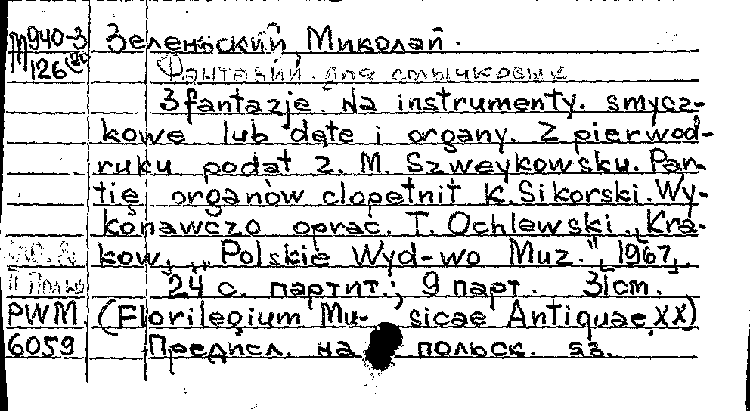 М940-3 Зеленьский Миколай.
М126
Фантазий для смычковых
3 fantazje. Na instrumenty. smycz-
kowe lub dęte i organy. Z pierwod-
ruku podał Z. M. Szweykowsku. Par-
tię organów clopełnit K. Sikorski. Wy-
konawczo oprac. T. Ochlewski. „Kra-
kow, „Polskie Wyd-wo Muz.", 1967,
24 с. партит.; 9 парт. 31cm.
PWM (Florilegium Mu- sicae Antiquae, XX)
6059 Предисл. на польск. яз.